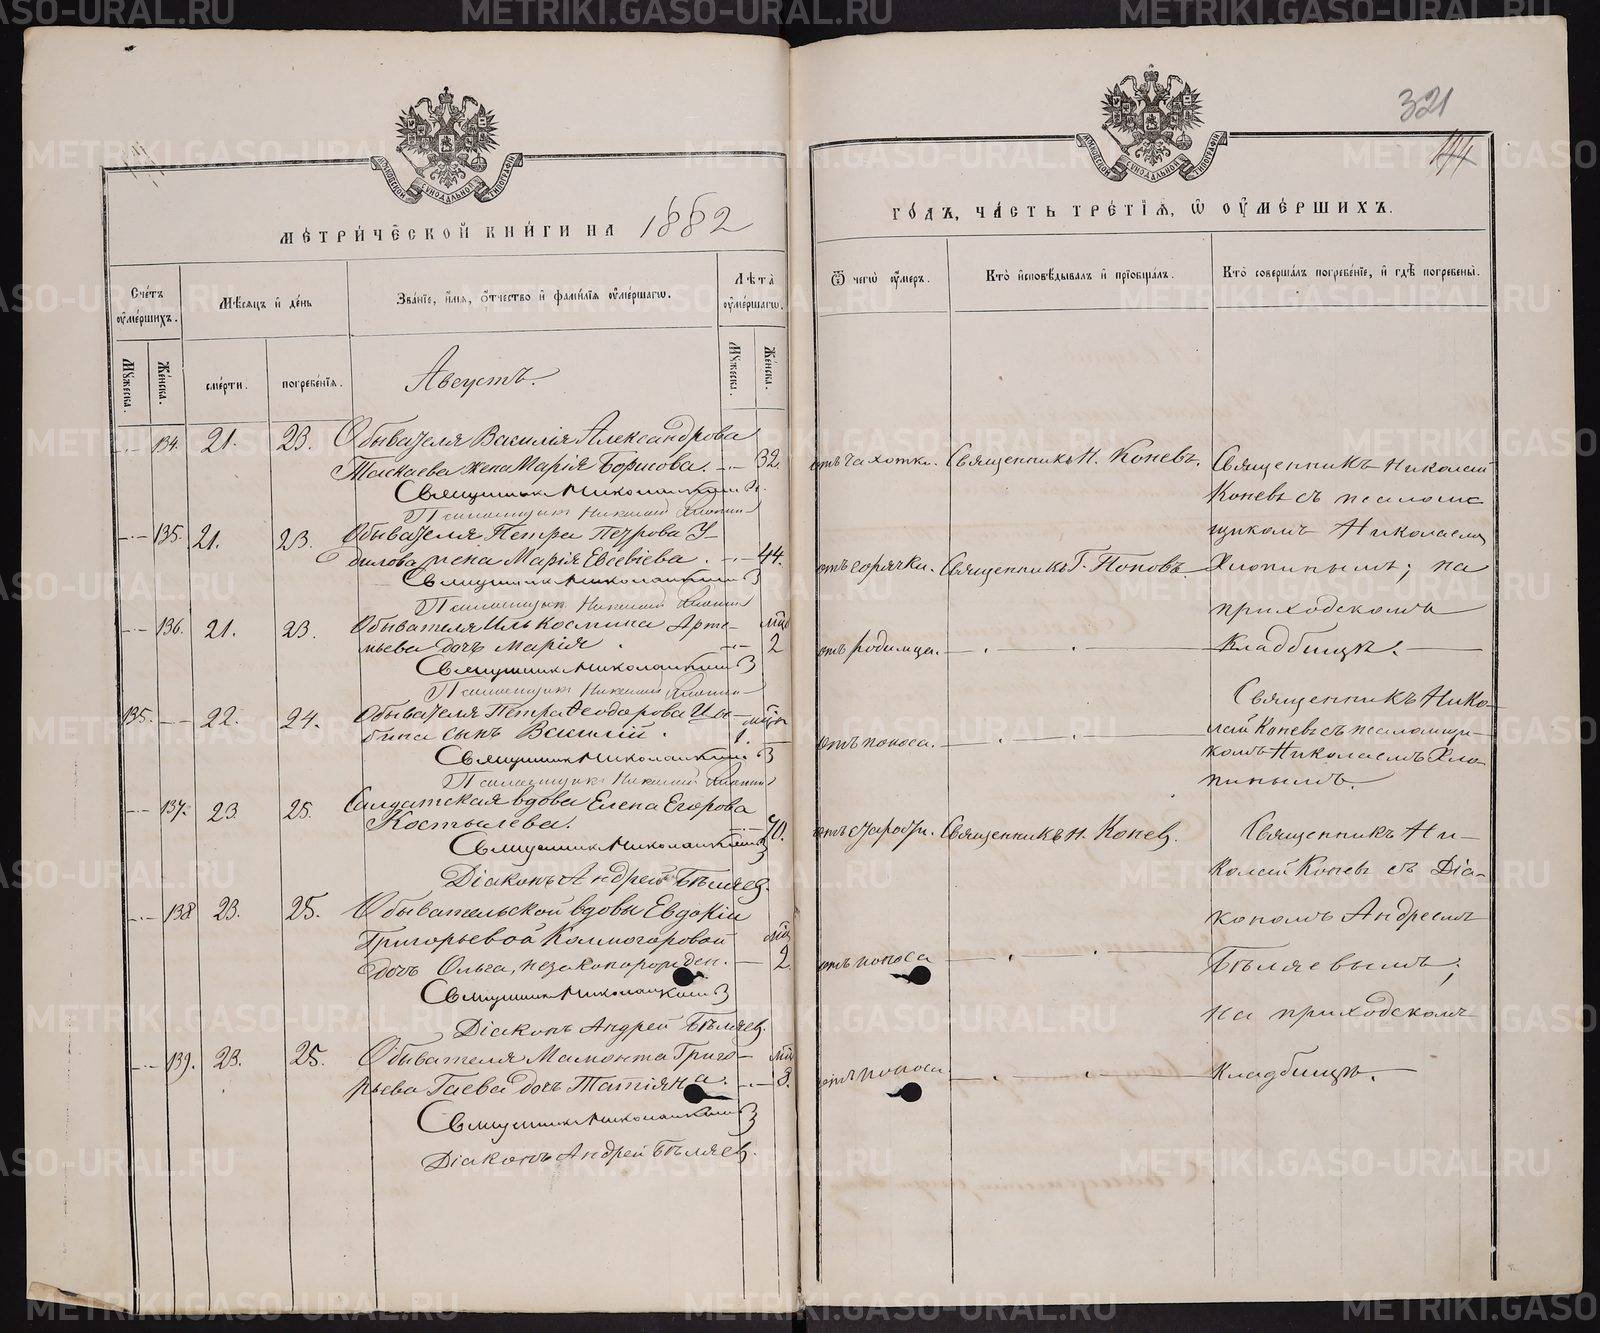 321
144
МЕТРИЧЕСКОЙ КНИГИ НА 1882
ГОДЪ, ЧАСТЬ ТРЕТІЯ, Ѿ ОУМЕРШИХЪ.
Счетъ оумершихъ.
Мѣсяцъ и день
Званіе, имя, отчество и фамилія оумершагѡ.
Лѣта оумершагѡ.
Ѿ чегѡ оумеръ.
Кто исповѣдывалъ и пріобщалъ.
Кто совершалъ погребеніе, и гдѣ погребены.
Мужеска.
Женска.
смерти.
погребенія.
Августъ.
Мужеска.
Женска.
134. 21. 23. Обывателя Василія Александрова
жена Марія Борисова. 32. отъ чахотки. Священникъ Н. Коневъ. Священникъ Николай
Коневъ съ псаломщикомъ Николаемъ
Священникъ Николай Коневъ
Псаломщикъ Николай Хлопинъ
135. 21. 23. Обывателя Петра Петрова У-
дилова жена Марія Евсевіева. 44. отъ горячки. Священникъ Г. Поповъ. Хлопинымъ; на
Священникъ Николай Коневъ
Псаломщикъ Николай Хлопинъ
приходскомъ
136. 21. 23. Обывателя Ильи Космина Арте-
мьева дочь Марія 2 отъ родимца. кладбищѣ.
Священникъ Николай Коневъ
Псаломщикъ Николай Хлопинъ
135. 22. 24. Обывателя Петра Ѳеодорова Цы-
бина сынъ Василій. 1. отъ поноса. Священникъ Нико-
лай Коневъ съ псаломщи-
комъ Николаемъ Хло-
пинымъ.
Священникъ Николай Коневъ
Псаломщикъ Николай Хлопинъ
137. 23. 25. Солдатская вдова Елена Егорова
Костылева. 70. отъ старости. Священникъ Н. Коневъ. Священникъ Ни-
колай Коневъ съ Діа-
Священникъ Николай Коневъ
Діаконъ Андрей Бѣляевъ.
138 23. 25. Обывательской вдовы Евдокіи
Григорьевой Колмогоровой
дочь Ольга, незаконорожден. 2. отъ поноса кономъ Андреемъ
Бѣляевымъ;
Священникъ Николай Коневъ
Діаконъ Андрей Бѣляевъ.
на приходскомъ
139. 23. 25. Обывателя Мамонта Григо-
рьева Гаева дочь Татіана. 3. отъ поноса кладбищѣ.
Священникъ Николай Коневъ
Діаконъ Андрей Бѣляевъ.
METRIKI.GASO-URAL.RU